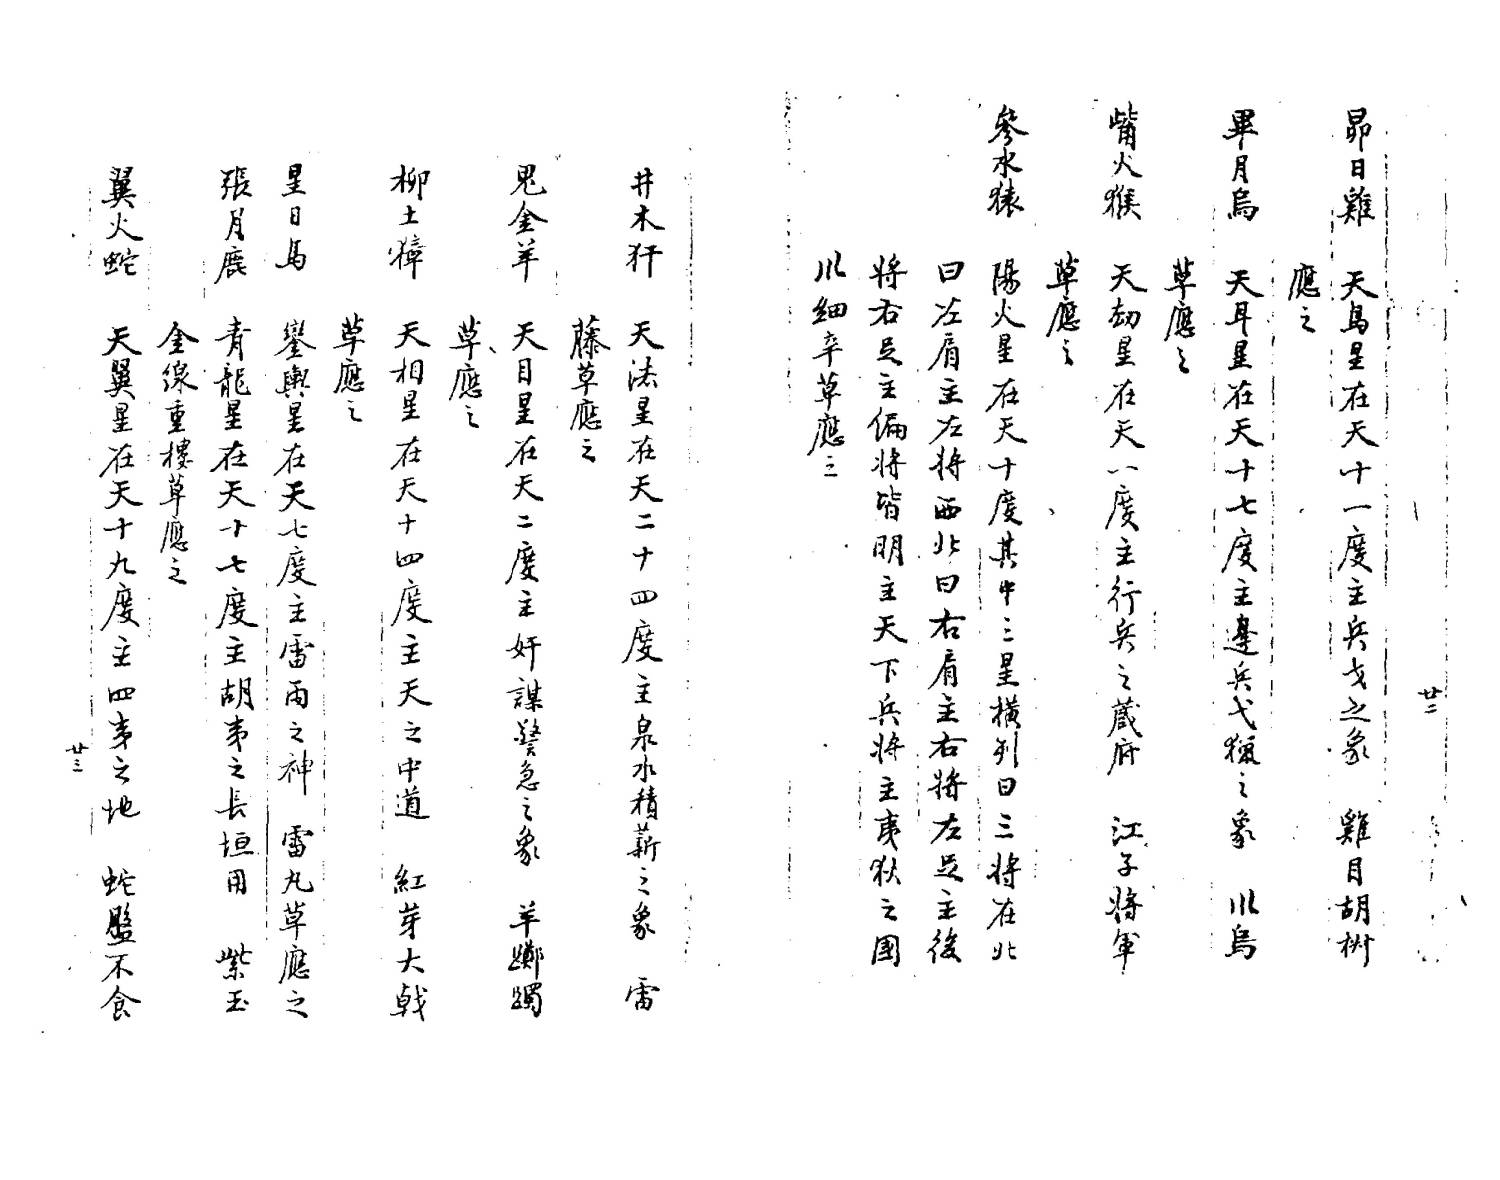 廿二
昴日雞　天烏星在天十一度主兵戈之象　雞目胡樹
應之
畢月烏　天耳星在天十七度主邊兵弋獵之象　川烏
草應之
觜火猴　天劫星在天一度主行兵之蔵府　江子將軍
草應之
參水猿　陽火星在天十度其中三星橫列曰三將在北
曰左肩主左將西北曰右肩主右將左足主後
將右足主偏將皆明主天下兵將主夷狄之國
川細辛草應之
井木犴　天法星在天二十四度主泉水積薪之象　雷
藤草應之
鬼金羊　天目星在天二度主奸謀警急之象　羊躑躅
草應之
柳土獐　天相星在天十四度主天之中道　紅芽大戟
草應之
星日馬　鑾輿星在天七度主雷雨之神　雷丸草應之
張月鹿　青龍星在天十七度主胡夷之長垣用　紫玉
金線重樓草應之
翼火蛇　天翼星在天十九度主四夷之地　蛇盤不食
廿三